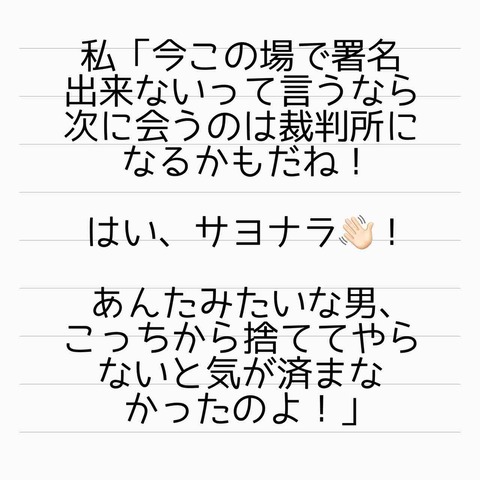 私「今この場で署名
出来ないって言うなら
次に会うのは裁判所に
なるかもだね！
はい、サヨナラ👋🏻！
あんたみたいな男、
こっちから捨ててやら
ないと気が済まな
かったのよ！」